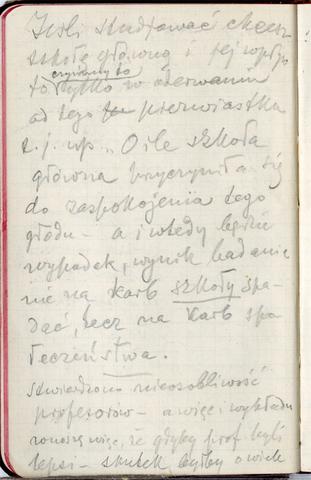 Jeśli studjować chcesz
szkołę główną i jej wpływ
czynimy to
to tylko w oderwaniu
od tego pierwiastka
t. j. np. „O ile szkoła
główna przyczyniła się
do zaspokojenia tego
głodu – a i wtedy będzie
wypadek, wynik badania
nie na karb szkoły spa-
dać, lecz na karb spo
łeczeństwa.
Stwierdzono nieosobliwość
profesorów – a więc i wykładu
więc, że gdyby prof. byli
lepsi – skutek byłby o wiele